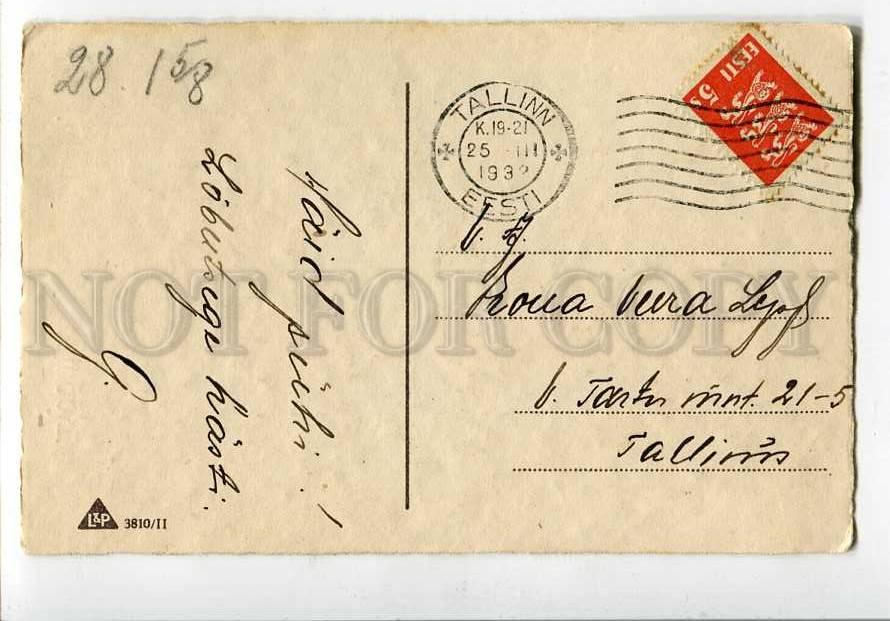 28 158
Häid pühi!
Lõbutsege hästi.
G.
L&P 3810/II
TALLINN
K.19-21
25 III
193
EESTI
EESTI
5 s
Vera
V. Tartu mnt. 21-5
Tallinn
NOT FOR COPY